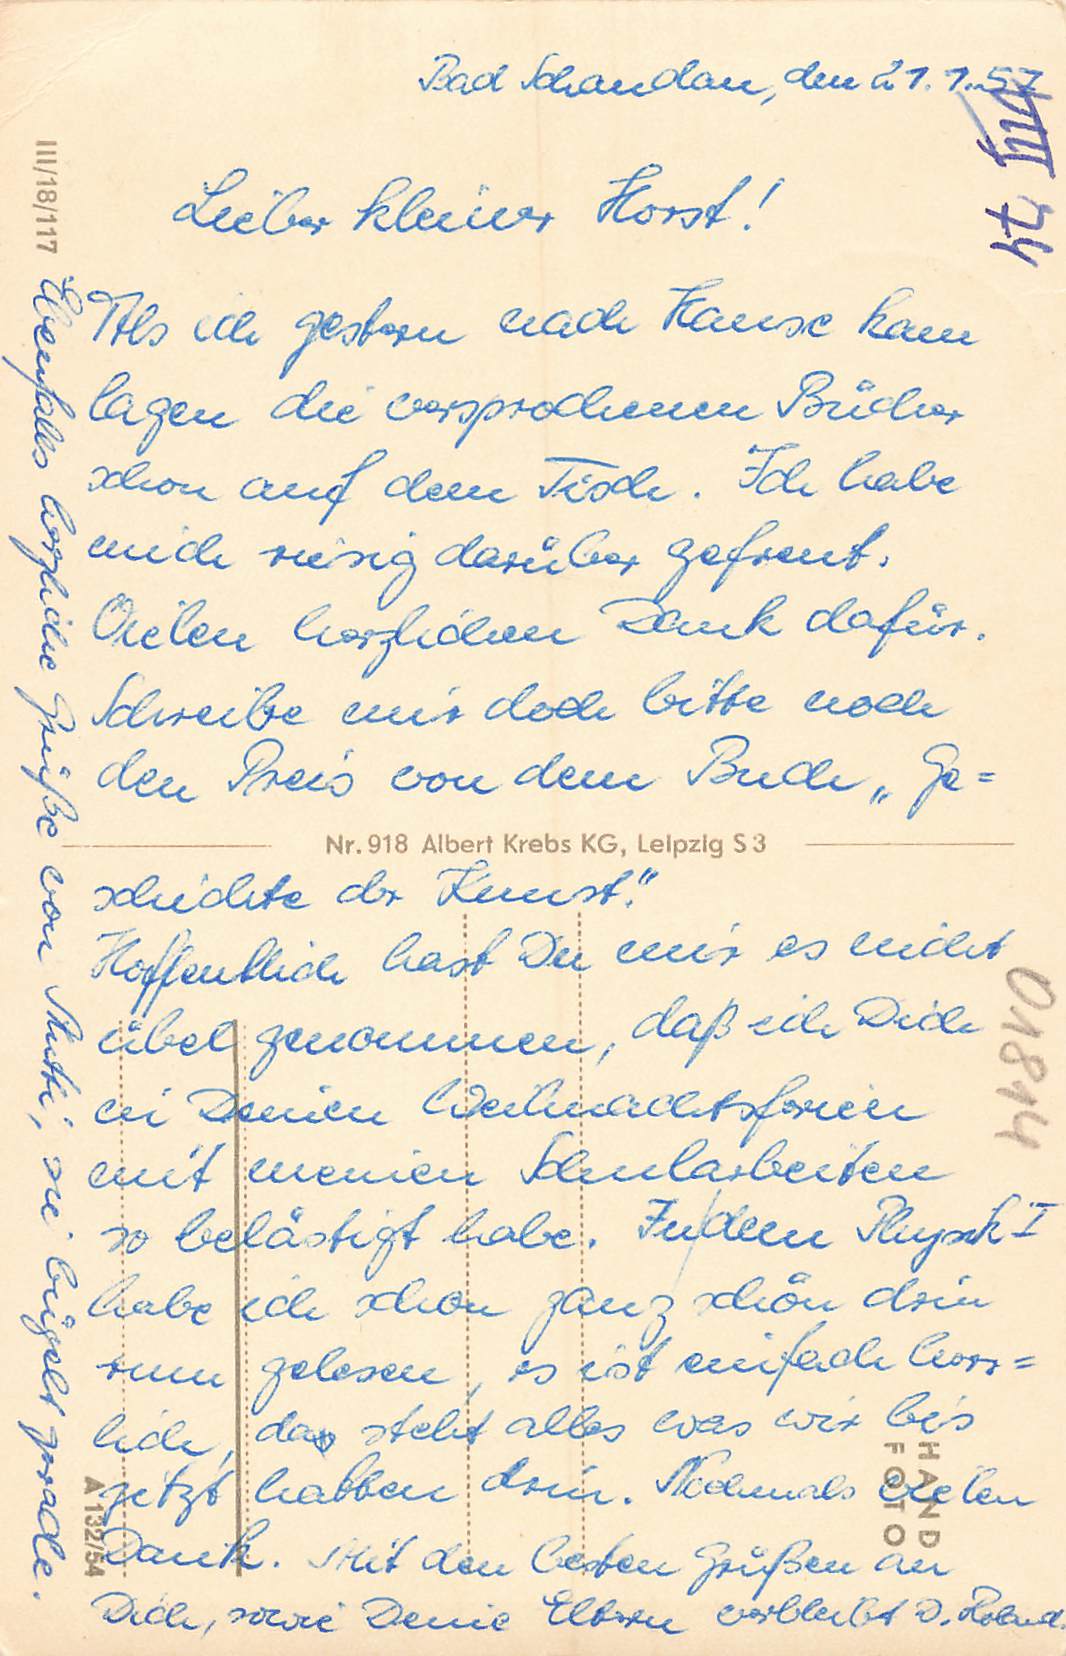 Bad Schandau, den 21.1.57
Lieber kleiner Horst!
Als ich gestern nach Hause kam
lagen die versprochenen Bücher
schon auf dem Tisch. Ich habe
mich riesig darüber gefreut.
Vielen herzlichen Dank dafür.
Schreibe mir doch bitte noch
den Preis von dem Buch „Ge=
Nr. 918 Albert Krebs KG, Leipzig S 3
schichte der Kunst."
Hoffentlich hast Du mir es nicht
übel genommen, daß ich Dich
in Deinen Weihnachtsferien
mit meinen Schularbeiten
so belästigt habe. In dem Physik I
habe ich schon ganz schön drin
rum gelesen, es ist einfach herr=
lich, da steht alles was wir bis
jetzt hatten drin. Nochmals vielen
Dank. Mit den besten Grüßen an
Dich, sowie Deine Eltern verbleibt D. Roland.
Ebenfalls herzliche Grüße von Mutti, sie bügelt gerade.
III/18/117
A 132/54
HAND
FOTO
01814